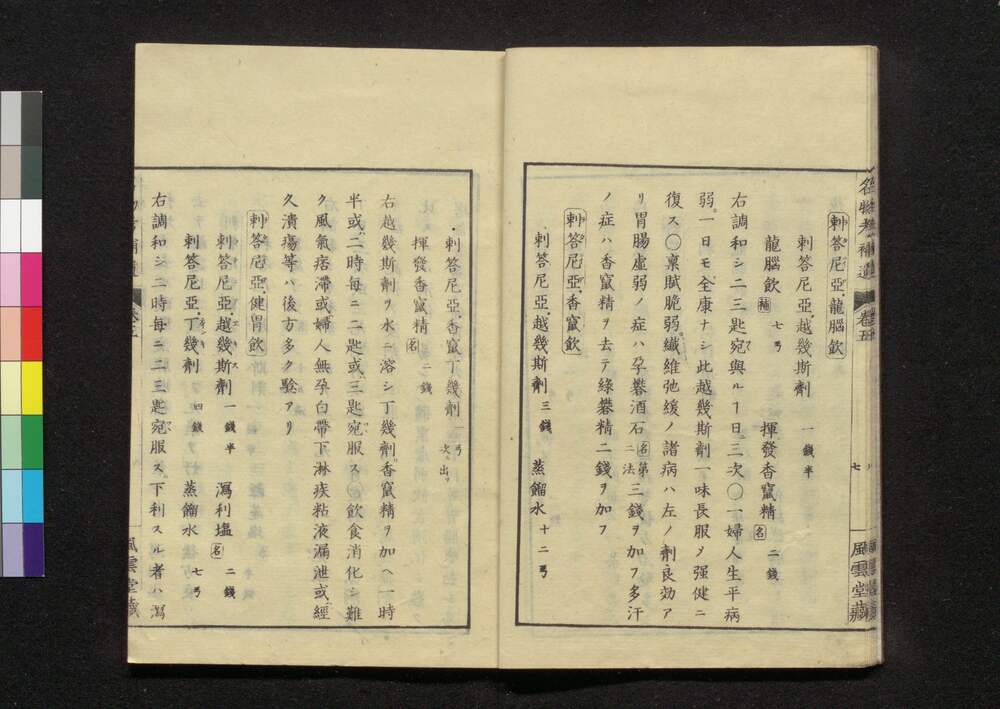 剌答尼亞龍腦飮
剌答尼亞越幾斯劑 一錢半
龍腦飮 補 七弓 揮發香竄精 名 二錢
右調和シ二三匙宛與ルヿ日三次〇一婦人生平病
弱一日モ全康ナシ此越幾斯劑一味長服メ强健ニ
復ス〇稟賦脆弱纖維弛緩ノ諸病ハ左ノ劑良効ア
リ胃腸虛弱ノ症ハ孕礬酒石 名 第二法 三錢ヲ加フ多汗
ノ症ハ香竄精ヲ去テ綠礬精二錢ヲ加フ
剌答尼亞香竄飮
剌答尼亞越幾斯劑 三錢 蒸餾水 十二弓
名物考補遺 卷五
七
風雲堂藏
剌答尼亞香竄丁幾劑 一弓 次ニ出ツ
揮發香竄精 名 二錢
右越幾斯劑ヲ水ニ溶シ丁幾劑香竄精ヲ加ヘ一時
半或二時每ニ二匙或三匙宛服ス〇飮食消化シ難
ク風氣痞滯或婦人無孕白帶下淋疾粘液漏泄或經
久潰瘍等ハ後方多ク驗アリ
剌答尼亞健胃飮
剌答尼亞越幾斯劑 一錢半 瀉利塩 名 二錢
剌答尼亞丁幾劑 四錢 蒸餾水 七弓
右調和シ二時每ニ二三匙宛服ス下利スル者ハ瀉
風雲堂藏